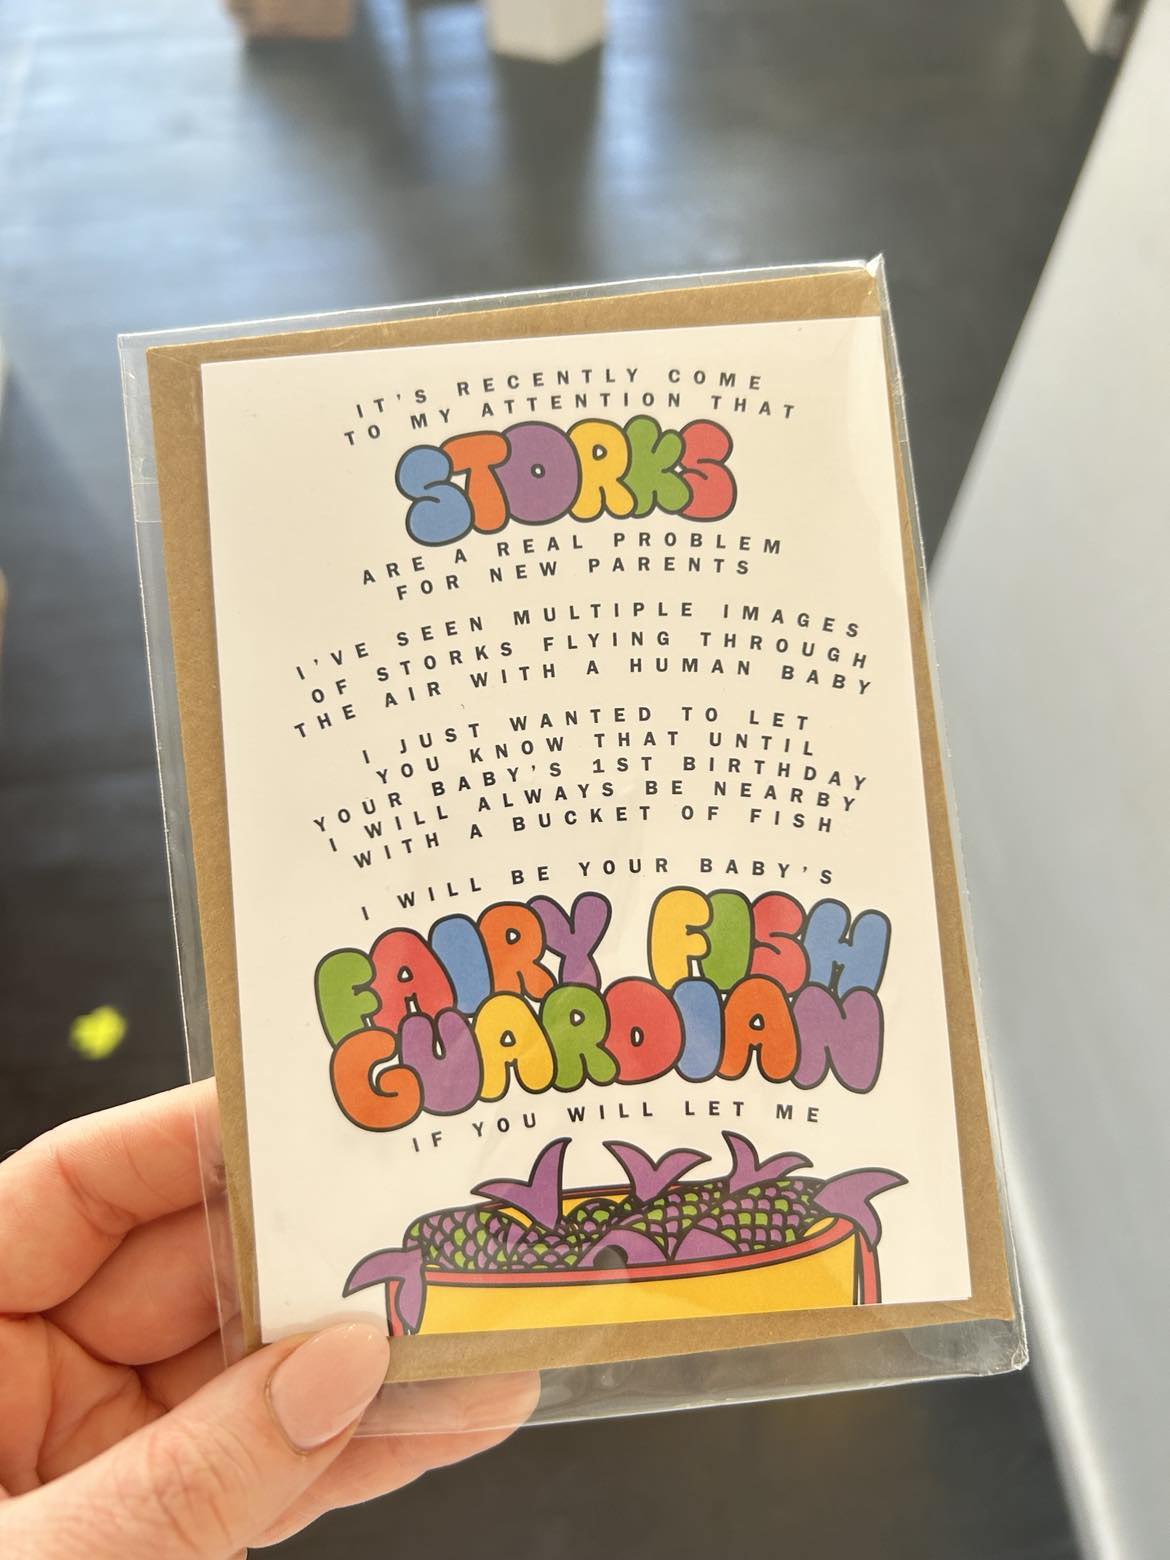 IT'S RECENTLY COME
TO MY ATTENTION THAT
STORKS
ARE A REAL PROBLEM
FOR NEW PARENTS
I'VE SEEN MULTIPLE IMAGES
OF STORKS FLYING THROUGH
THE AIR WITH A HUMAN BABY
I JUST WANTED TO LET
YOU KNOW THAT UNTIL
YOUR BABY'S 1ST BIRTHDAY
I WILL ALWAYS BE NEARBY
WITH A BUCKET OF FISH
I WILL BE YOUR BABY'S
FAIRY FISH
GUARDIAN
IF YOU WILL LET ME